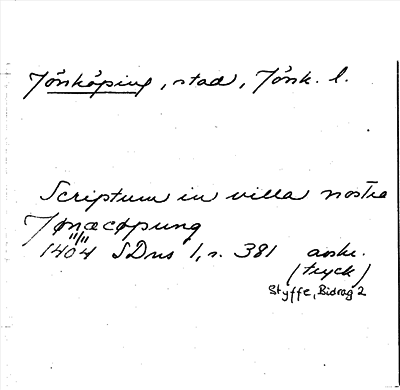 Jönköping, stad, Jönk. l.
Scriptum in villa nostra
Jønæcøpung
11/11
1404 SDns 1, s. 381 avskr.
(tryck)
Styffe, Bidrag 2